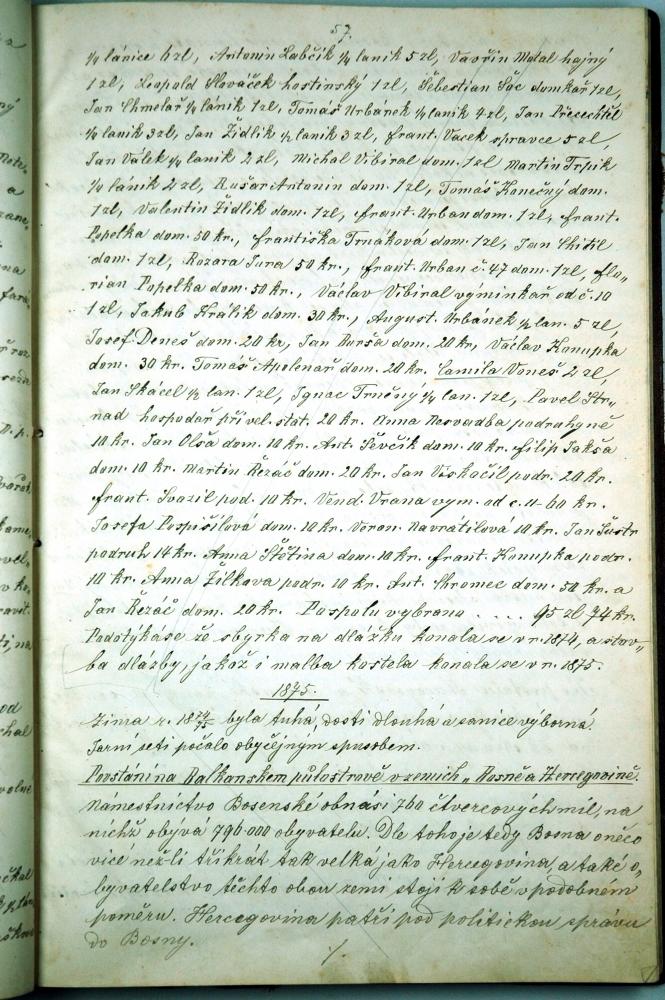 57.
¼ lánice 6 zl, Antonin Labčík ¼ lanik 5 zl, Vavřin Matal hajný
1 zl, Leopold Slováček hostinský 1 zl, Šebestian Šoc domkář 1 zl,
Jan Chmelař ¼ lánik 1 zl, Tomáš Urbánek ½ lanik 4 zl, Jan Přecechtěl
¼ lanik 3 zl, Jan Židlik ½ lanik 3 zl, frant. Vacek spravce 5 zl,
Jan Válek ¼ lanik 2 zl, Michal Vibiral dom. 1 zl Martin Trpik
¼ lánik 2 zl, Rušar Antonin dom. 1 zl, Tomáš Konečný dom.
1 zl, Valentin Židlik dom. 1 zl, frant. Urban dom. 1 zl, frant.
Popelka dom. 50 kr., františka Trnáková dom. 1 zl, Jan Chitil
dom. 1 zl, Rozara Jura 50 kr., frant. Urban č. 47 dom. 1 zl, flo„
rian Popelka dom. 50 kr., Václav Vibiral výminkař od č. 10
1 zl, Jakub Králik dom. 30 kr., August. Urbánek ½ lan. 5 zl,
Josef Deneš dom. 20 kr, Jan Burša dom. 20 kr, Václav Konupka
dom. 30 kr. Tomáš Apolenař dom. 20 kr. Camila Voneš 2 zl,
Jan Skácel ½ lan. 1 zl, Ignac Trnečný ¼ lan. 1 zl, Pavel Str„
nad hospodař při vel. stat. 20 kr. Anna Nesvadba podruhyně
10 kr. Jan Olša dom. 10 kr. Ant. Ševčik dom. 10 kr. filip Jakša
dom. 10 kr. Martin Řezáč dom. 20 kr. Jan Vískočil podr. 20 kr.
frant. Svozil pod. 10 kr. Vend. Vrana vym. od č. 11 - 60 kr.
Josefa Pospišilová dom. 10 kr. Veron. Navrátilová 10 kr. Jan Šustr
podruh 14 kr. Anna Štětina dom. 10 kr. frant. Konupka podr.
10 kr. Anna Žilkova podr. 10 kr. Ant. Chromec dom. 50 kr. a
Jan Řezáč dom. 20 kr. Pospolu vybrano .... 95 zl 74 kr.
Podotýkase že sbyrka na dlažku konala se v r. 1874, a stav„
ba dlažby, jakož i malba kostela konala se v r. 1875.
1875.
Zima r. 1874/75 byla tuhá, dosti dlouhá a sanice výborná.
Jarní seti počalo obyčejným spusobem.
Povstání na Balkanskem půlostrově v zemich „Bosně a Hercegovině.
Náměstnictvo Bosenské obnáši 760 čtvercových mil, na
nichž obývá 796.000 obyvatelu. Dle toho je tedy Bosna o něco
vicé nežli třikrát tak velká jako Hercegovina, a také o„
byvatelstvo těchto obou zemi stoji k sobě v podobném
poměru. Hercegovina patří pod politickou správu
do Bosny.